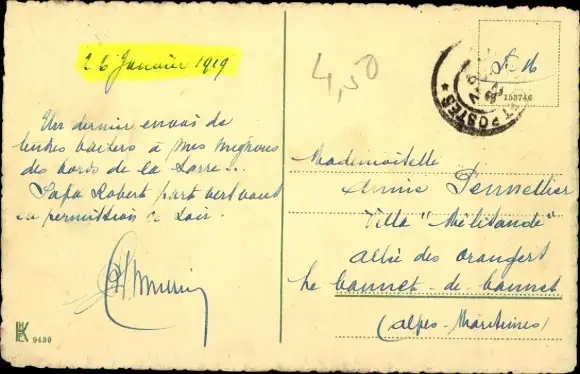 26 Janvier 1919
4,50
F. M
153746
POSTES
Un dernier envoi de
tendres baisers à mes mignons
des bords de la Sarre...
Papa Robert part
en permission ce soir.
Mademoiselle
Annie Pennellier
Villa "Mélisande"
allée des orangers
Le Cannet-de-Cannes
(Alpes-Maritimes)
9439